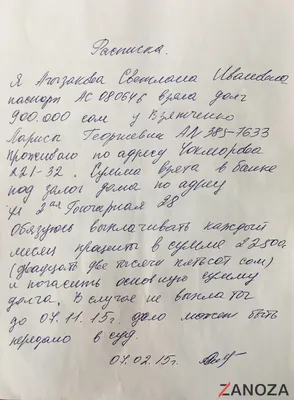 Расписка.
Я Атызакова Светлана Ивановна
паспорт АС 080646 взяла долг
900.000 сом у Взятченко
Ларисы Георгиевны AN 385-7633
Проживаю по адресу Чокморова
221-32. Сумма взята в банке
под залог дома по адресу
ул 2ая Гончарная 28
Обязуюсь выплачивать каждый
месяц проценты в сумме 22500
(двадцать две тысячи пятьсот сом)
и погасить основную сумму
долга. В случае не выплаты
до 07.11.15г. дело может быть
передано в суд.
07.02.15г.
ZANOZA